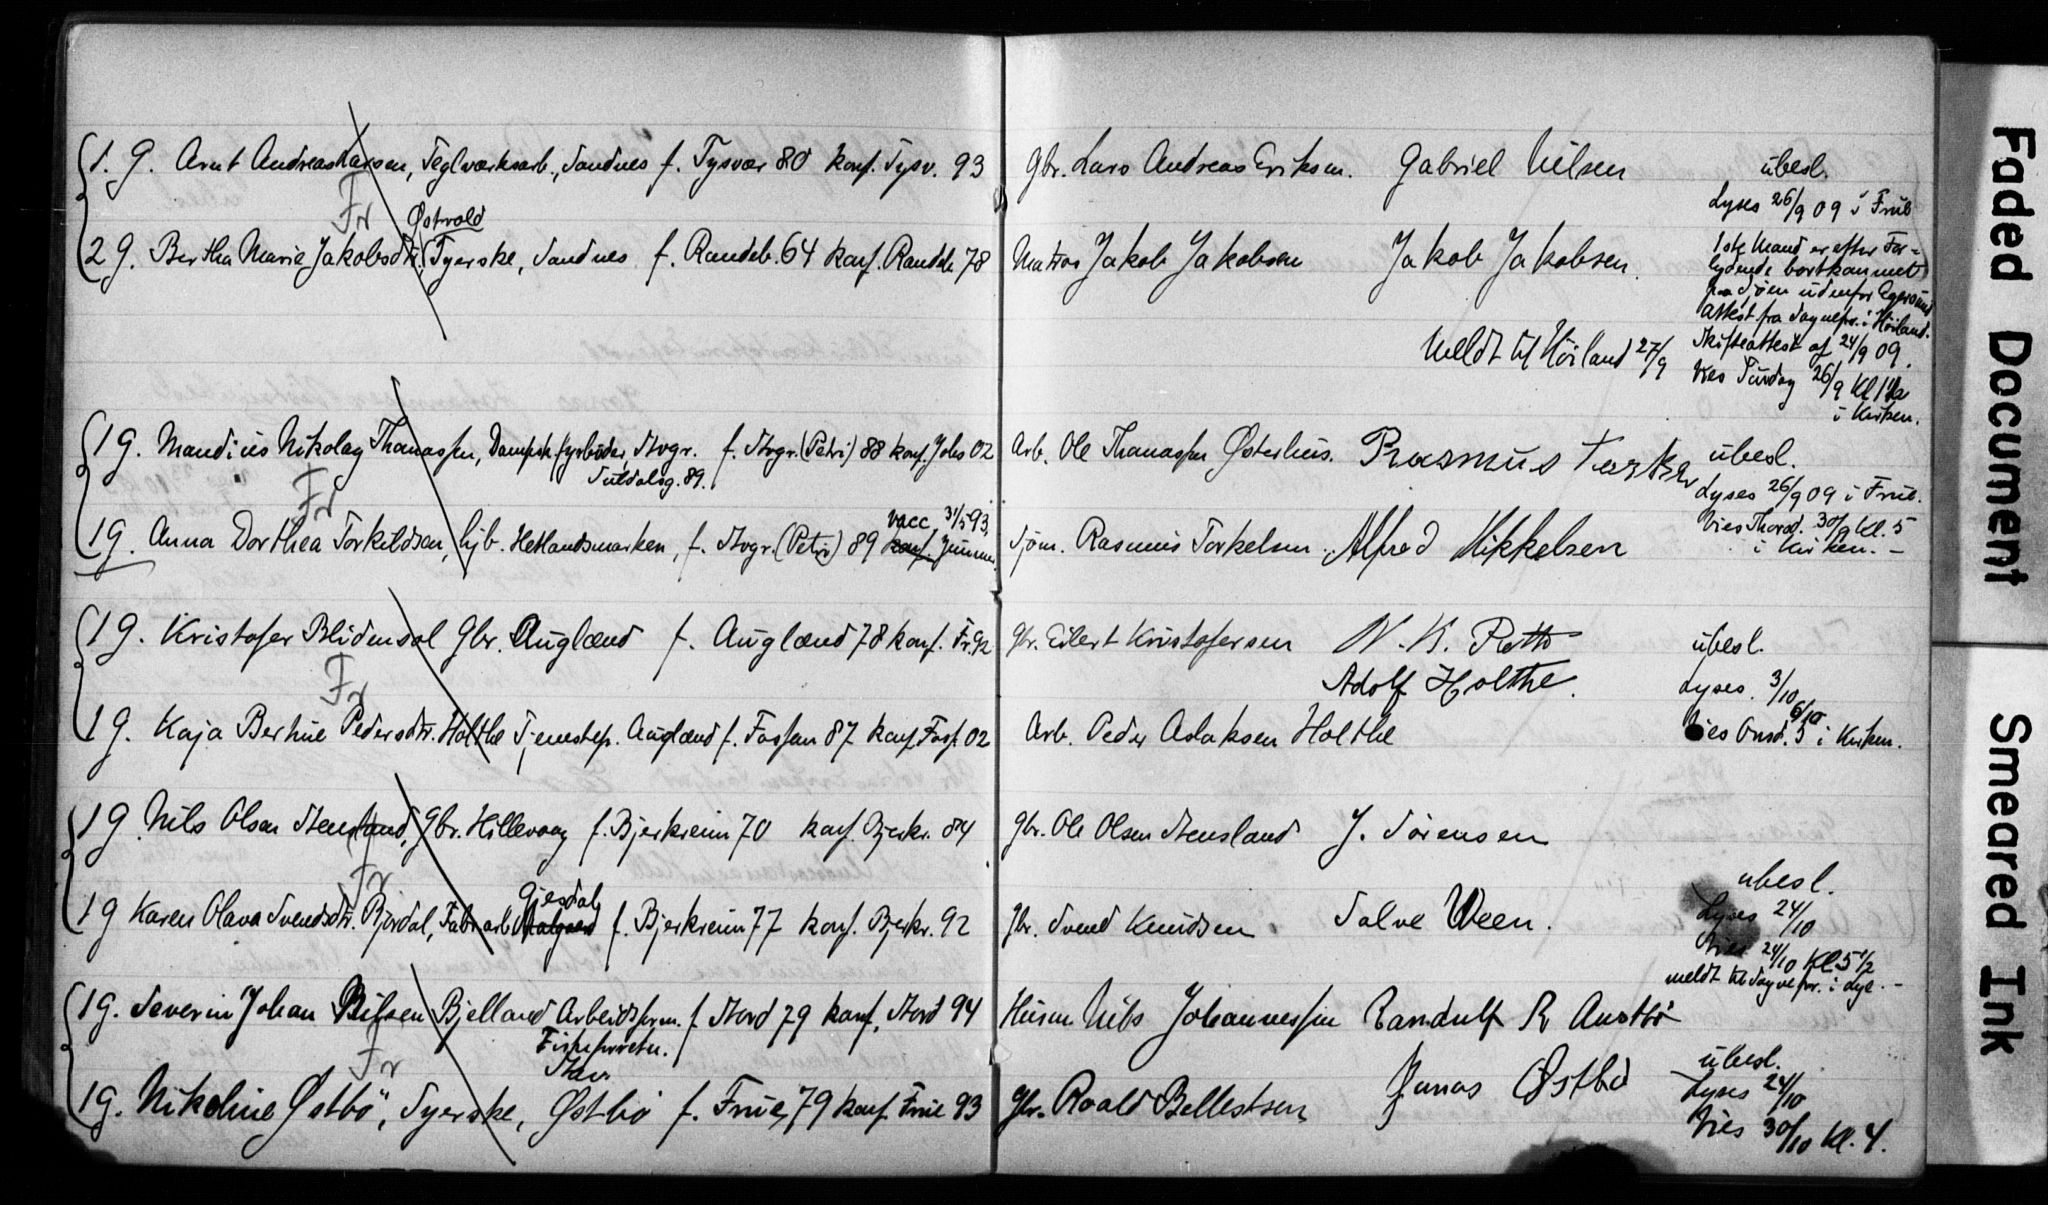 1. G. Arnt Andreas Larsen, Teglværksarb., Sandnes f. Tysvær 80 konf. Tysv. 93
Fr
Østvold
2 G. Bertha Marie Jakobsdtr. Syerske, Sandnes f. Randeb. 64 konf. Randeb. 78
1 G. Mandius Nikolay Thomassen, Dampsk. fyrbøder, Stvgr. f. Stvgr. (Petri) 88 konf. Johs 02
Suldalsg. 89.
Fr
vacc. 31/5 93,
1 G. Anna Dorthea Torkildsen, hjb. Hetlandsmarken, f. Stvgr. (Petri) 89 konf.
1 G. Kristofer Blidensol Gbr. Auglænd f. Auglænd 78 konf. Fr. 92
Fr
1 G. Kaja Bertine Pedersdtr. Holthe Tjenestep. Auglænd f. Fossan 87 konf. Foss. 02
1 G Nils Olsen Stensland, Gbr. Hillevaag f. Bjerkreim 70 konf. Bjerkr. 84
Fr
Gjesdal
1 G Karen Olava Svendsdtr. Bjordal, Fabr.arb. Aalgaard f. Bjerkreim 77 konf. Bjerkr. 92
1 G. Severin Johan Nilsen Bjelland Arbeidsform. f Stord 79 konf. Stord 94
Stav.
Fr
1 G. Nikoline Østbø, Syerske, Østbø f. Frue 79 konf. Frue 93
Gbr. Lars Andreas Eriksen. Gabriel Nilsen
ubesl.
Lyses 26/9 09 i Frue
Matros Jakob Jakobsen Jakob Jakobsen.
1ste Mand er efter For-
lydende bortkommet
paa Sjøen udenfor Egersund
Attest fra Sognepr. i Høiland.
Skifteattest af 24/9 09.
Meldt til Høiland 27/9
Vies Søndag 26/9 Kl 1 1/2
i Kirken.
Arb. Ole Thomassen Østerhus. Rasmus
ubesl.
Lyses 26/9 09 i Frue.
Sjøm. Rasmus Torkelsen. Alfred Mikkelsen
Vies Thorsd. 30/9 Kl. 5
i Kirken. –
Gbr. Eilert Kristofersen N. K.
ubesl.
Adolf Holthe.
Lyses. 3/10
6/10
Arb. Peder Aslaksen Holthe
Vies Onsd. 5 i Kirken.
Gbr. Ole Olsen Stensland J. Sørensen
ubesl.
Lyses 24/10
Gbr. Svend Knudsen Salve Ween.
Vies 24/10 Kl. 5 1/2
meldt til Sognepr. i Lye. –
Husm. Nils Johannessen Randulf R Austbø
ubesl.
Lyses 24/10
Gbr. Roald Jonas Østbø
Vies 30/10 Kl. 4.
Faded Document
Smeared Ink